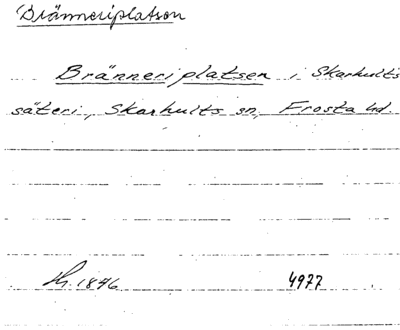 Bränneriplatsen
Bränneriplatsen i Skarhults
säteri, Skarhults sn, Frosta hd.
Hr. 1846 4977